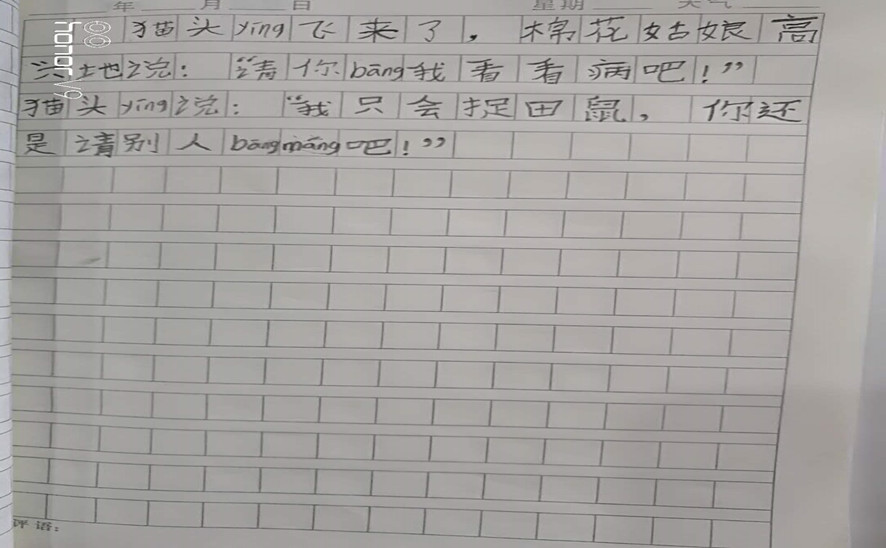 年 月 日 星期 天气
猫头yīng飞来了，棉花姑娘高
兴地说：“请你bāng我看看病吧！”
猫头yīng说：“我只会捉田鼠，你还
是请别人bāngmáng吧！”
评语：
honor V9